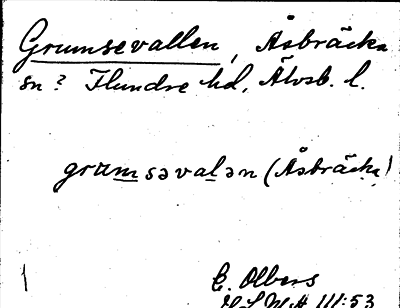 Grumsevallen, Åsbräcka
sn? Flundre hd, Älvsb. l.
grumsəvalən (Åsbräcka)
E. Olbers
III:53